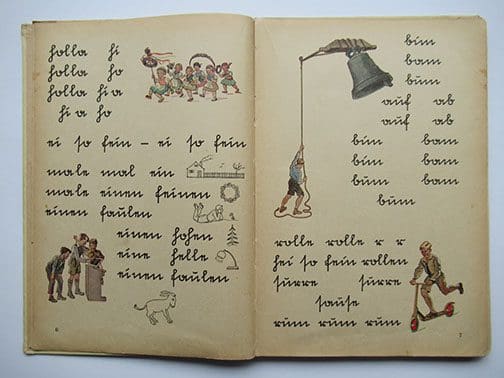 holla hi
holla ho
holla hi a
hi a ho
ei so fein – ei so fein
male mal ein
male einen feinen
einen faulen
einen hohen
eine helle
einen faulen
6
bim
bam
bum
auf ab
auf ab
bim bam
bim bam
bum bam
bum
rolle rolle r r
hei so fein rollen
surre surre
sause
rum rum rum
7